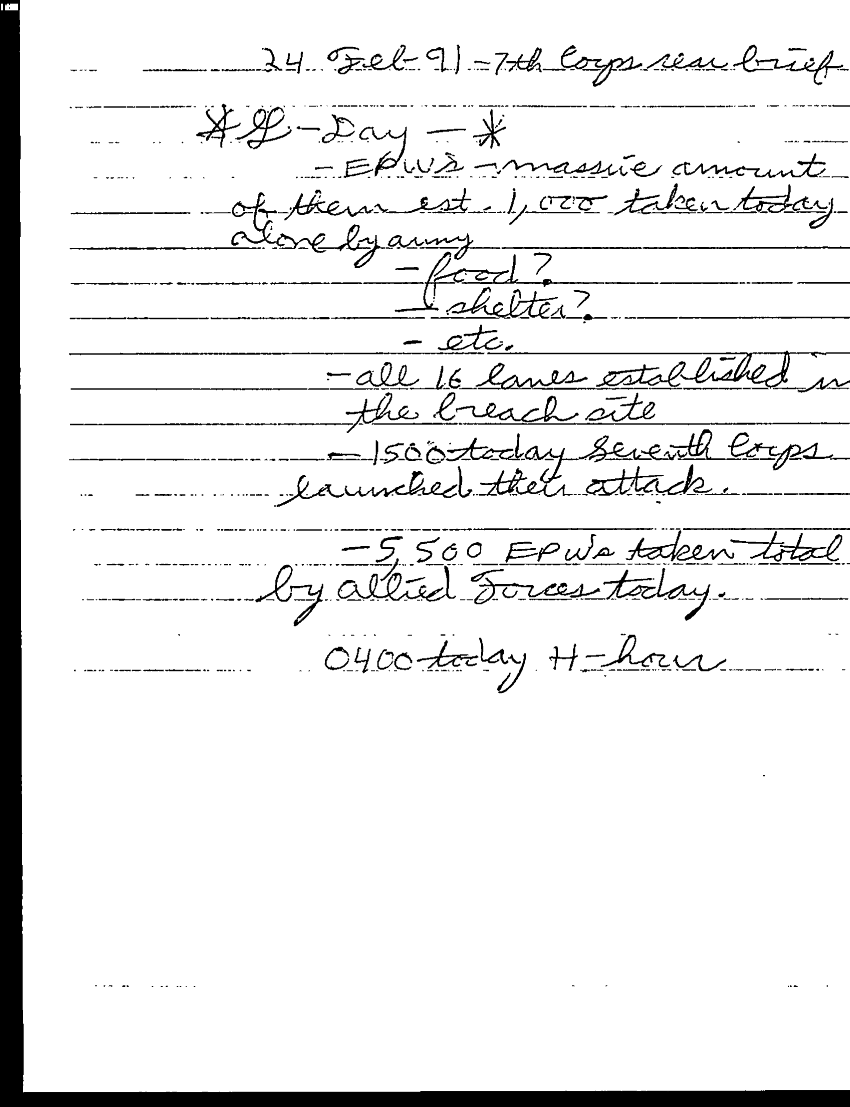 24 Feb 91 - 7th Corps rear brief
* G-Day - *
- EPW's - massive amount
of them est. 1,000 taken today
alone by army
- food?
- shelter?
- etc.
- all 16 lanes established in
the breach site
- 1500 today Seventh Corps
launched their attack.
- 5,500 EPW's taken total
by allied Forces today.
0400 today H-hour